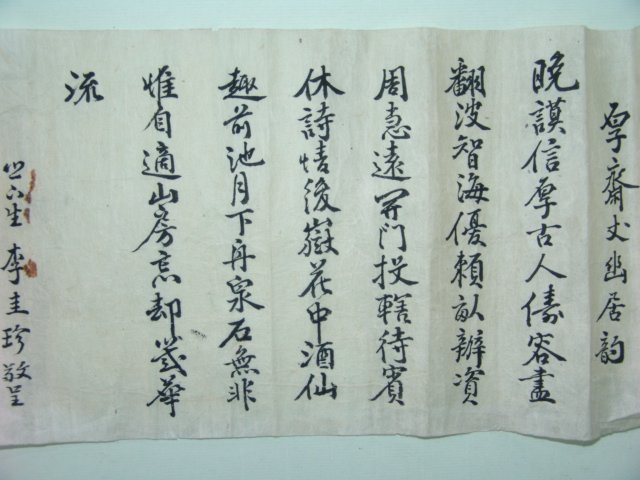 厚齋丈幽居韵
晩謨信厚古人儔容盡
翻波智海優賴畝辦資
周惠遠開門投轄待賓
休詩情後嶽花中酒仙
趣前池月下舟泉石無非
惟自適山房忘却歲華
流
下生 李圭珍敬呈